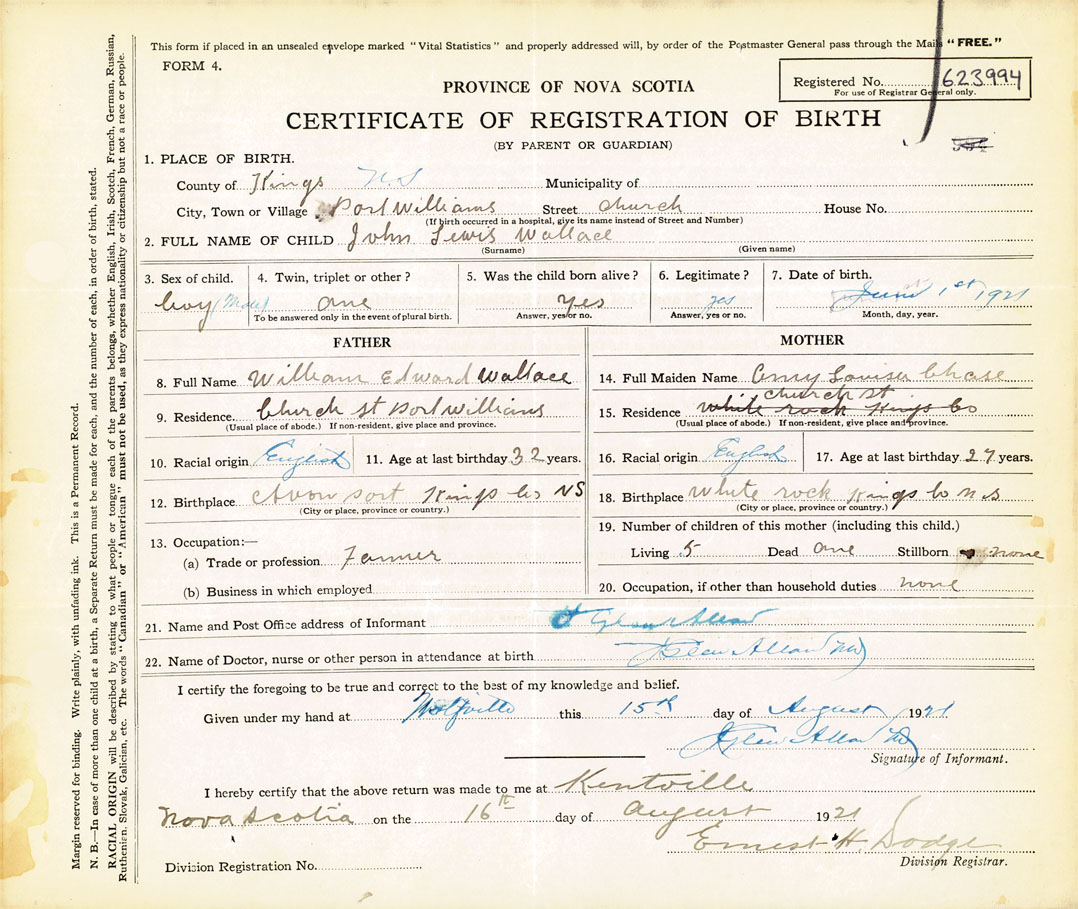 This form if placed in an unsealed envelope marked "Vital Statistics" and properly addressed will, by order of the Postmaster General pass through the Mails "FREE."
FORM 4.
Registered No. 623994
For use of Registrar General only.
PROVINCE OF NOVA SCOTIA
CERTIFICATE OF REGISTRATION OF BIRTH
(BY PARENT OR GUARDIAN)
1. PLACE OF BIRTH.
County of Kings N.S Municipality of
City, Town or Village Port Williams Street Church House No.
(If birth occurred in a hospital, give its name instead of Street and Number)
2. FULL NAME OF CHILD John Lewis Wallace
(Surname) (Given name)
3. Sex of child. 4. Twin, triplet or other? 5. Was the child born alive? 6. Legitimate? 7. Date of birth.
boy (Male) one yes yes June 1st 1921
To be answered only in the event of plural birth. Answer, yes or no. Answer, yes or no. Month, day, year.
FATHER
8. Full Name William Edward Wallace
9. Residence. Church st Port Williams
(Usual place of abode.) If non-resident, give place and province.
10. Racial origin English 11. Age at last birthday 32 years.
12. Birthplace Avon port Kings Co NS
(City or place, province or country.)
13. Occupation:—
(a) Trade or profession Farmer
(b) Business in which employed
MOTHER
14. Full Maiden Name Amy Louise Chase
church st
15. Residence white rock Kings Co
(Usual place of abode.) If non-resident, give place and province.
16. Racial origin English 17. Age at last birthday 27 years.
18. Birthplace White rock Kings Co N.S
(City or place, province or country.)
19. Number of children of this mother (including this child.)
Living 5 Dead one Stillborn none
20. Occupation, if other than household duties none
21. Name and Post Office address of Informant Allan
22. Name of Doctor, nurse or other person in attendance at birth Allan MD
I certify the foregoing to be true and correct to the best of my knowledge and belief.
Given under my hand at Wolfville this 15th day of August 1921
Allan MD
Signature of Informant.
I hereby certify that the above return was made to me at Kentville
Nova Scotia on the 16th day of August 1921
Ernest H Dodge
Division Registrar.
Division Registration No.
Margin reserved for binding. Write plainly, with unfading ink. This is a Permanent Record.
N. B.—In case of more than one child at a birth, a Separate Return must be made for each, and the number of each, in order of birth, stated.
RACIAL ORIGIN will be described by stating to what people or tongue each of the parents belongs, whether English, Irish, Scotch, French, German, Russian,
Ruthenian, Slovak, Galician, etc. The words "Canadian" or "American" must not be used, as they express nationality or citizenship but not a race or people.